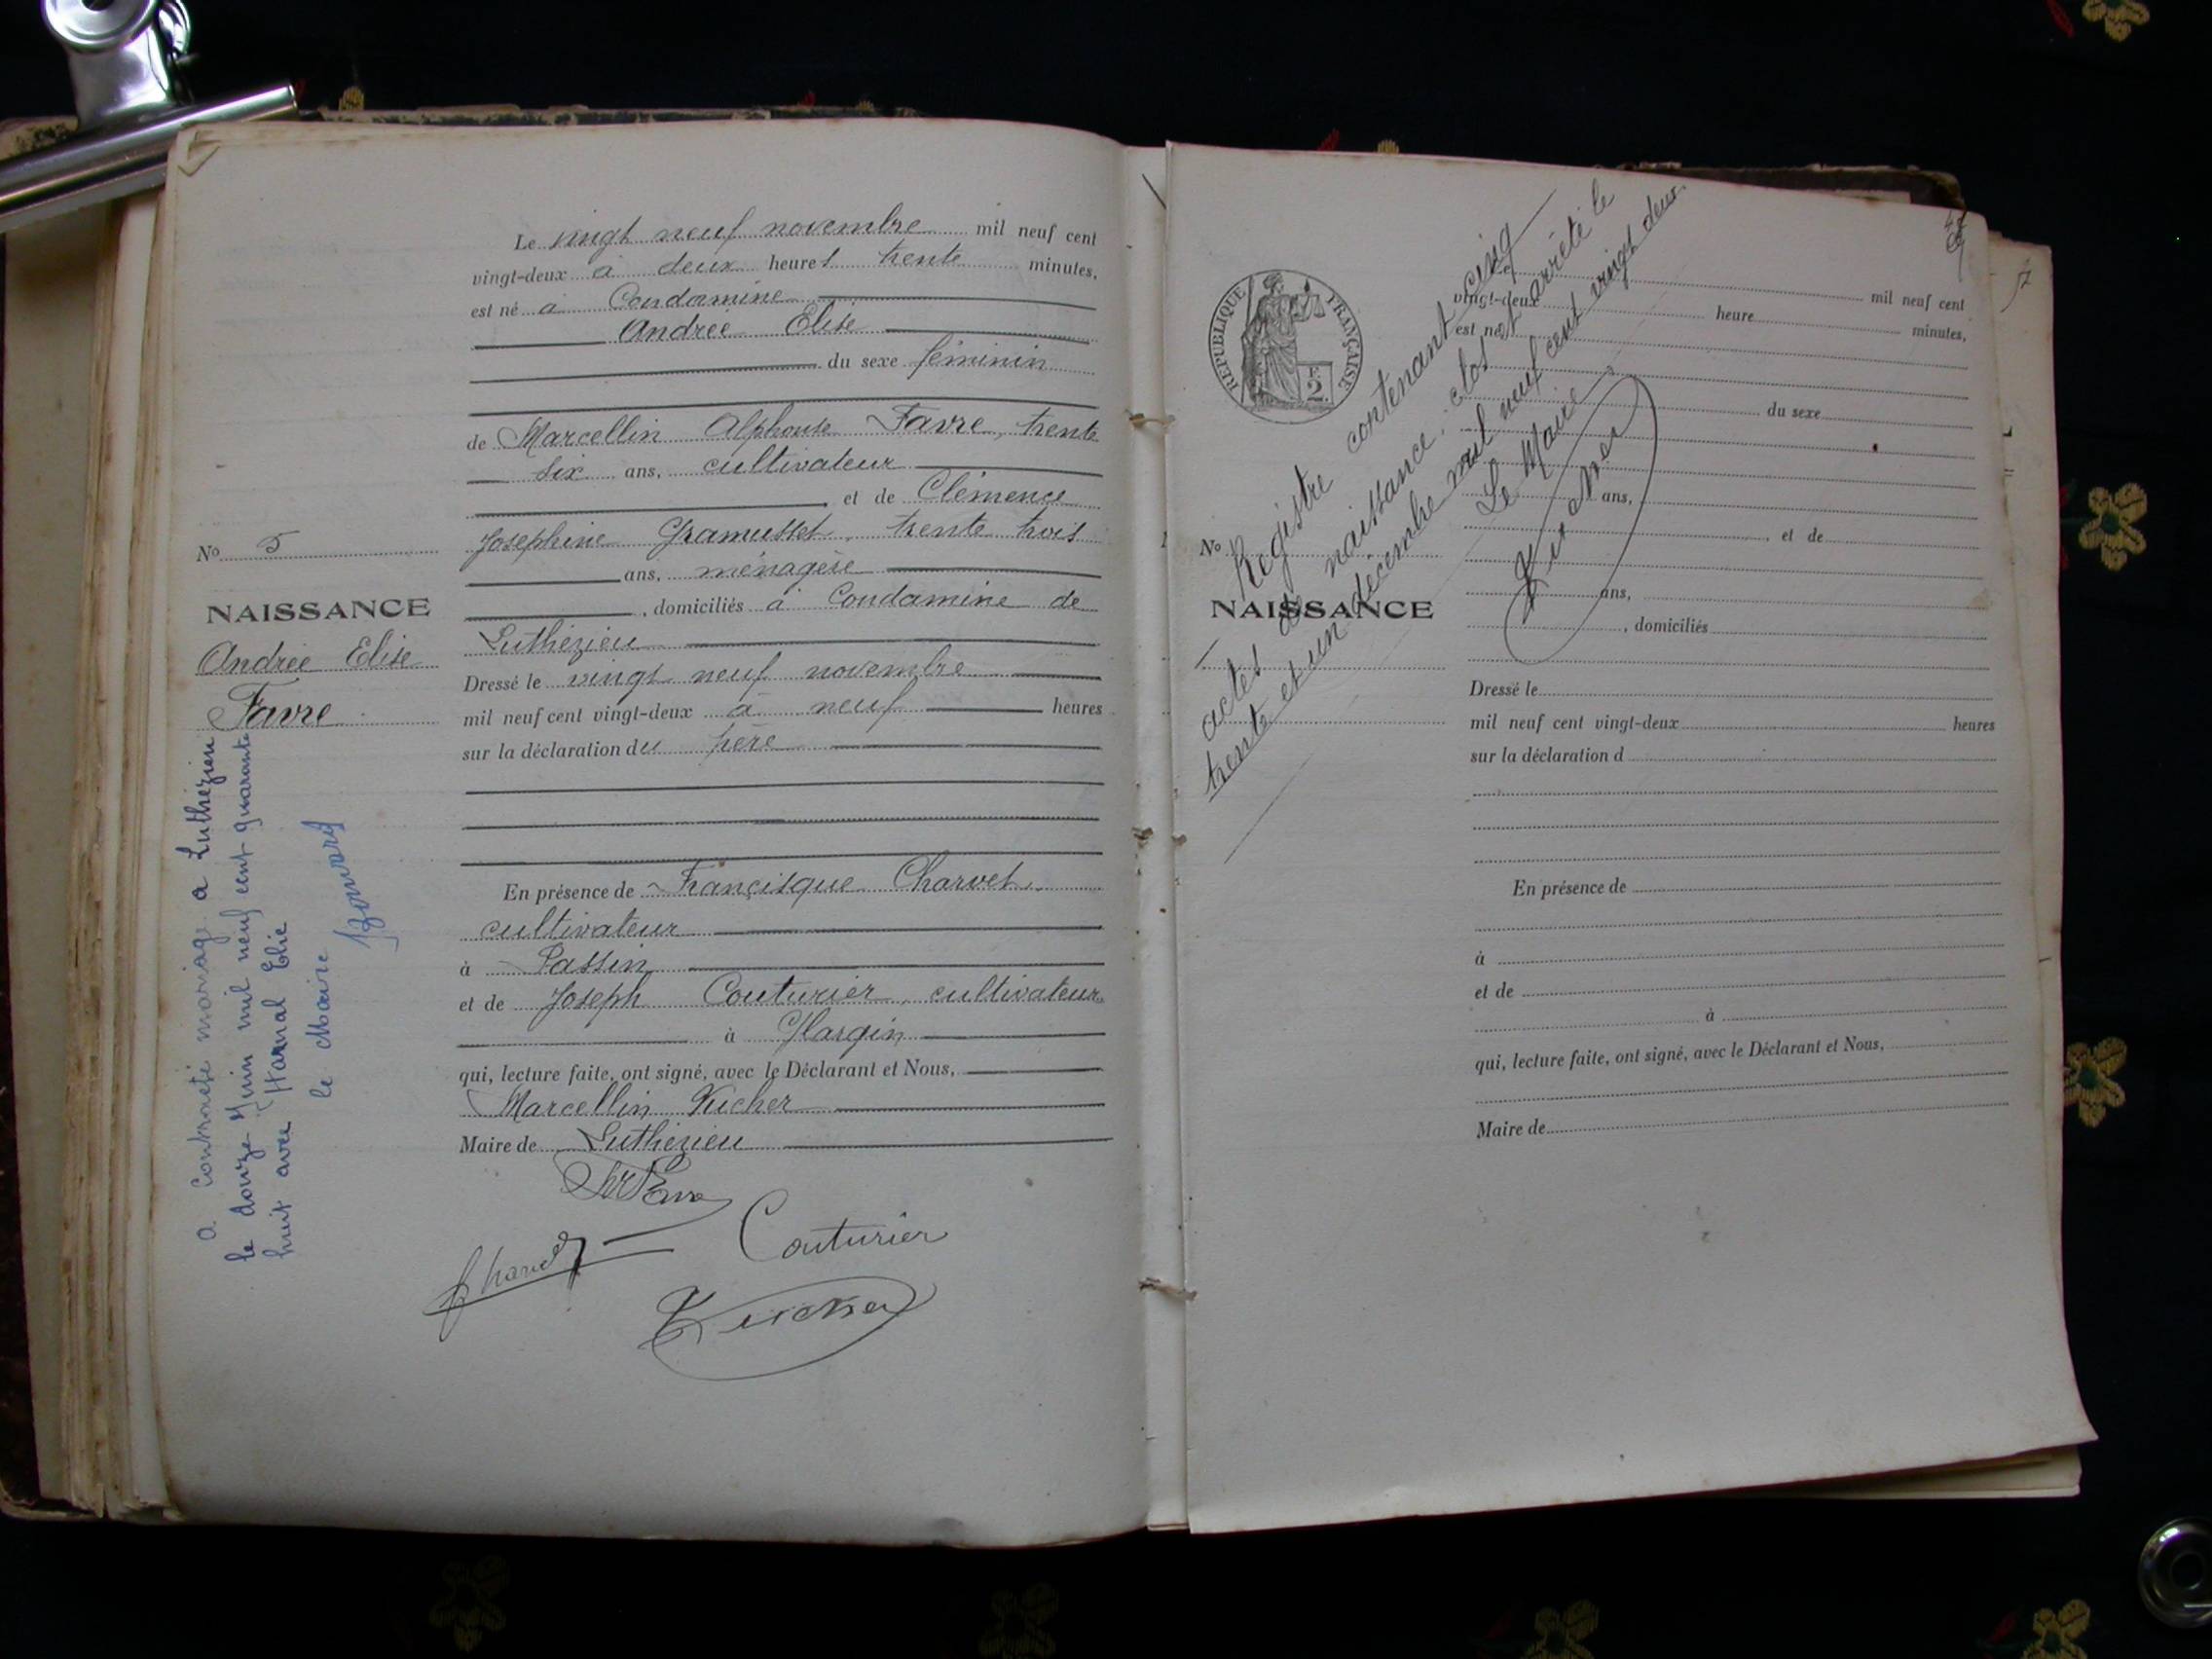 Le vingt neuf novembre mil neuf cent
vingt-deux à deux heures trente minutes,
est né à Condamine
Andrée Elise
du sexe féminin
de Marcellin Alphonse Favre, trente
six ans, cultivateur
et de Clémence
Joséphine Gramusset, trente trois
ans, ménagère
, domiciliés à Condamine de
Luthézieu
Dressé le vingt neuf novembre
mil neuf cent vingt-deux à neuf heures
sur la déclaration du père
En présence de Francisque Charvet,
cultivateur
à Passin
et de Joseph Couturier, cultivateur
à Hargin
qui, lecture faite, ont signé, avec le Déclarant et Nous,
Marcellin Vucher
Maire de Luthézieu
Couturier
Vucher
No 5
NAISSANCE
Andrée Elise
Favre
a contracté mariage a Luthézieu
le douze Juin mil neuf cent quarante
huit avec Harnal Elie
le Maire
RÉPUBLIQUE FRANÇAISE
F.
2.
Registre contenant cinq
actes de naissance: clos et arrêté le
trente et un décembre mil neuf cent vingt deux.
Le Maire
Vucher
No
NAISSANCE
Le mil neuf cent
vingt-deux heure minutes,
est né
du sexe
ans,
, et de
ans,
, domiciliés
Dressé le
mil neuf cent vingt-deux heures
sur la déclaration d
En présence de
à
et de
à
qui, lecture faite, ont signé, avec le Déclarant et Nous,
Maire de